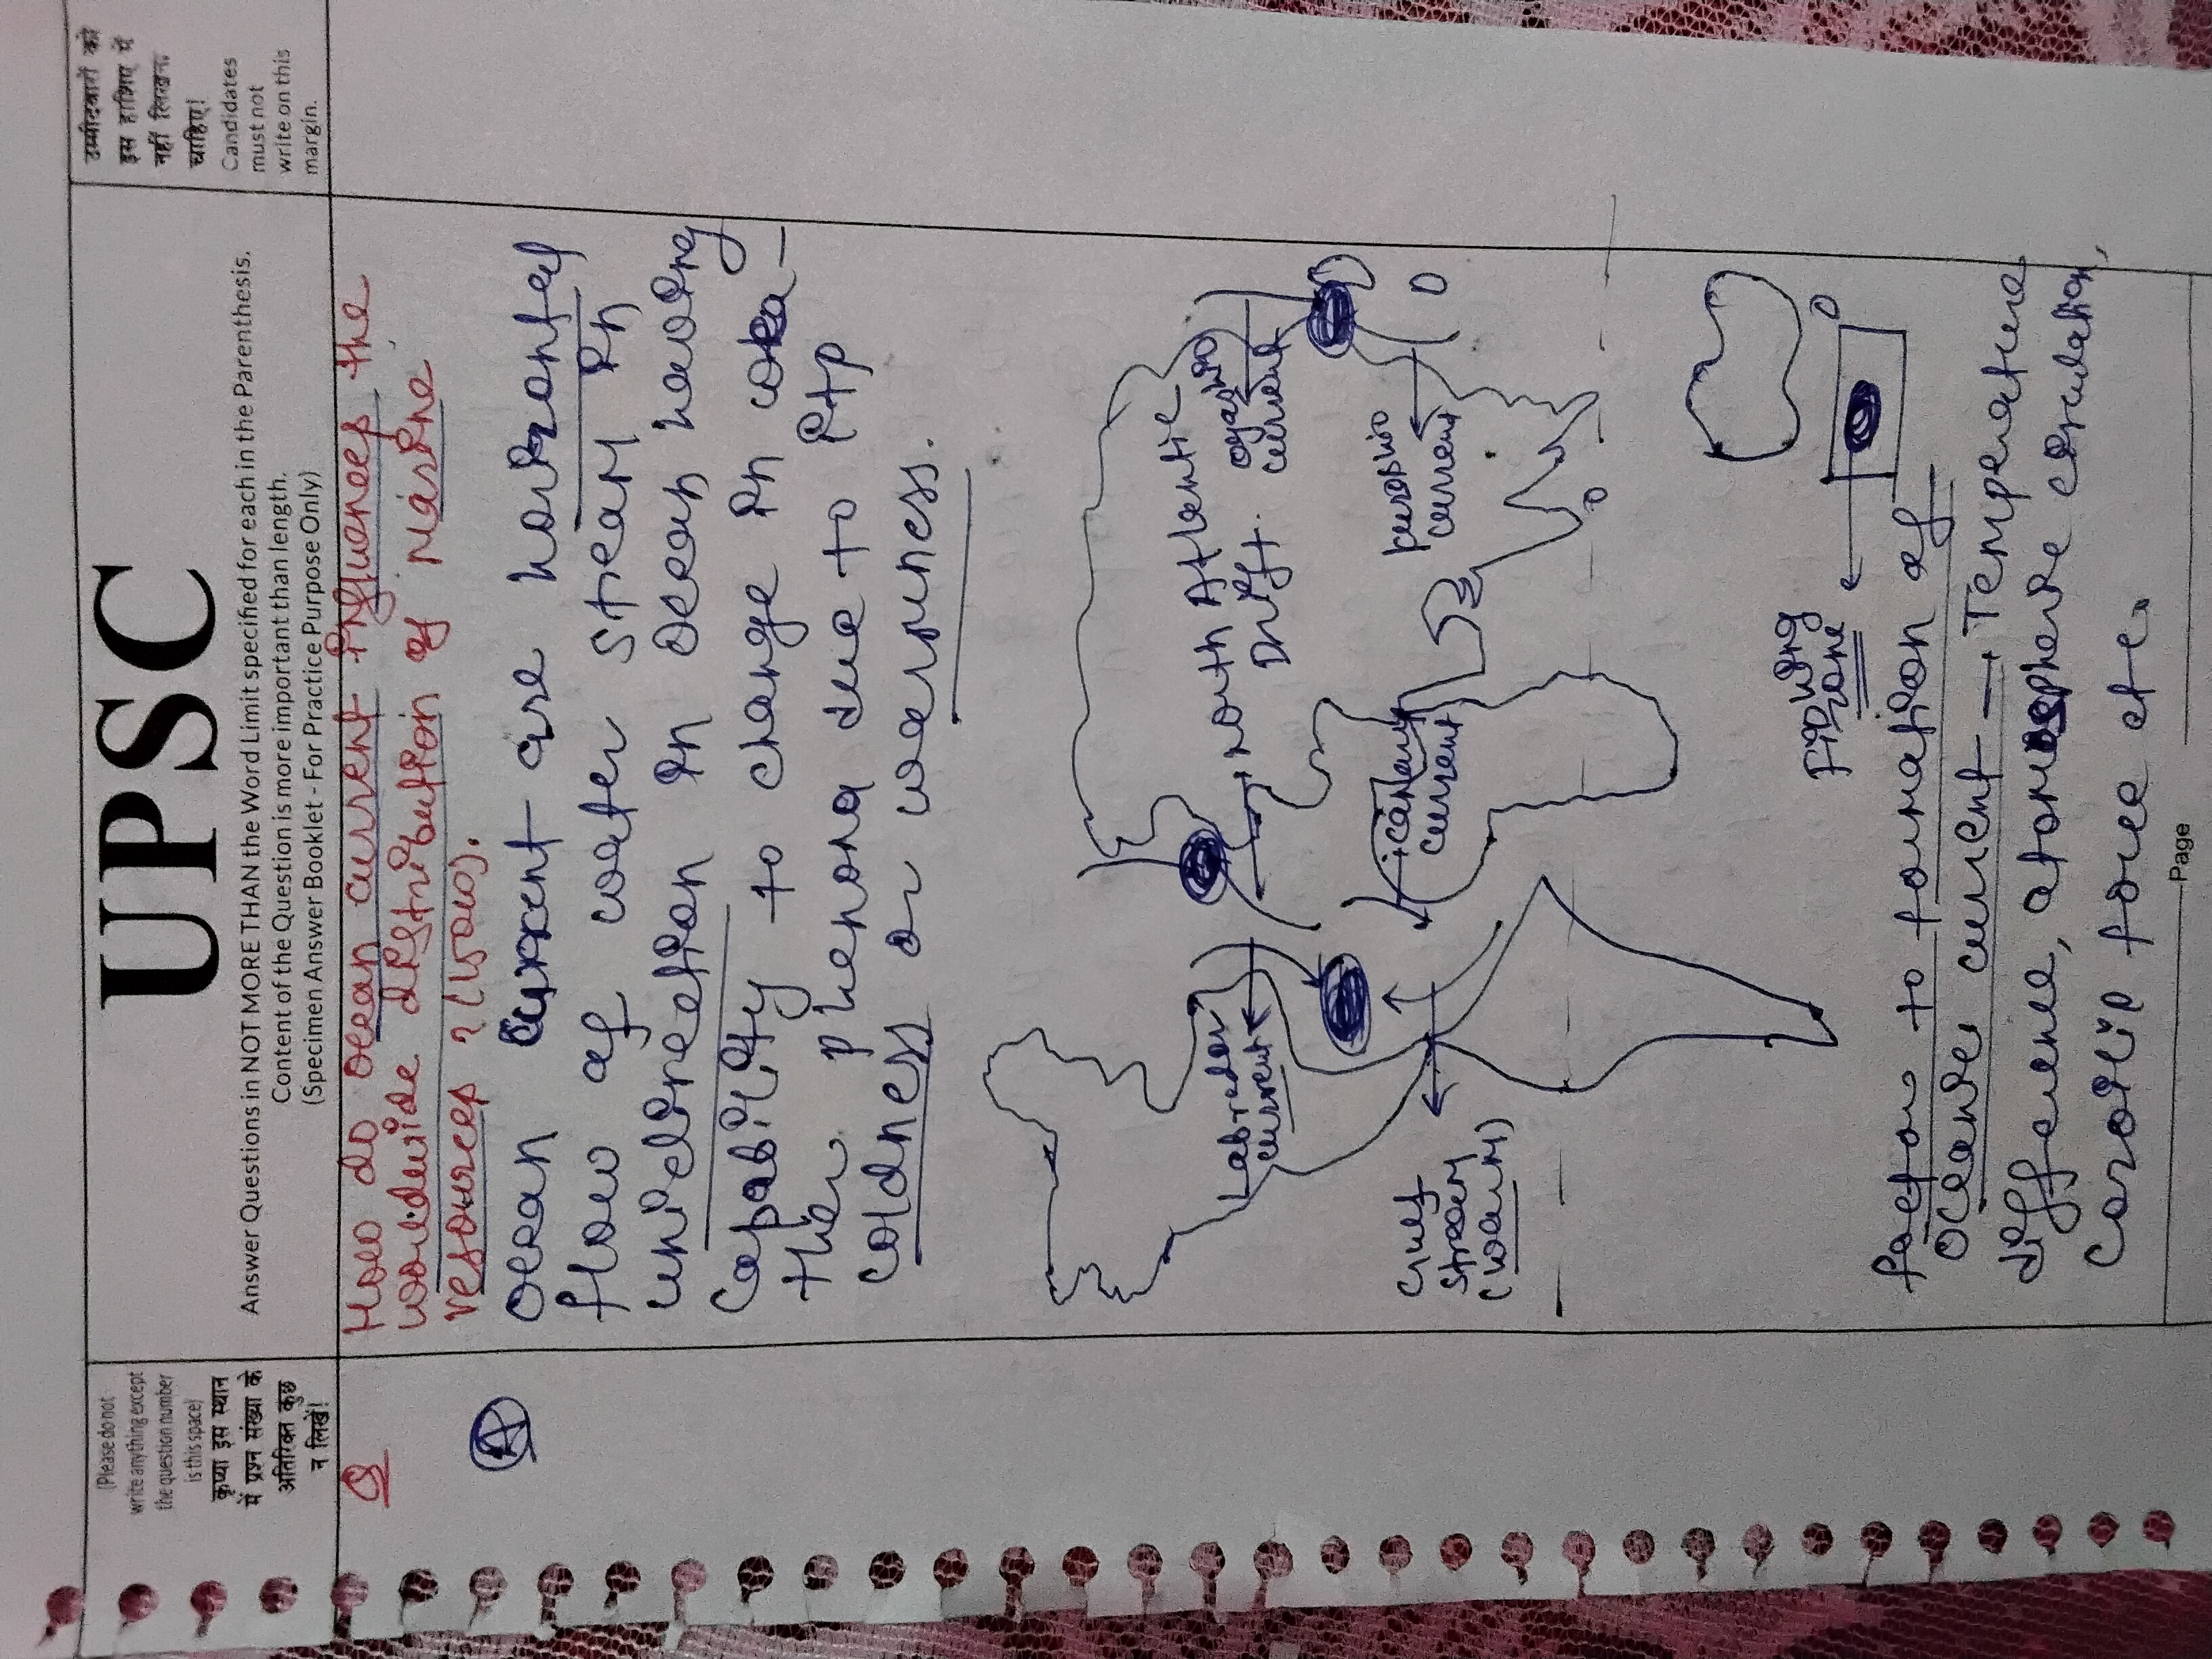 (Please do not
write anything except
the question number
is this space)
कृप्या इस स्थान
में प्रश्न संख्या के
अतिरिक्त कुछ
न लिखें!
UPSC
Answer Questions in NOT MORE THAN the Word Limit specified for each in the Parenthesis.
Content of the Question is more important than length.
(Specimen Answer Booklet - For Practice Purpose Only)
उम्मीदवारों को
इस हाशिए में
नहीं लिखना
चाहिए!
Candidates
must not
write on this
margin.
Q
How do ocean current influences the
worldwide distribution of Marine
resources ?
A
Ocean current are horizontal
flow of water stream in
unidirection in ocean having
capability to change in
their phenona due to itp
coldness or warmness.
Labredor
current
North Atlantic
Drift
oyasiwo
current
Gulf
stream
(warm)
canary
current
kurosiwo
current
Fishing
zone
factor to formation of
oceanic current — Temperature
difference, atomosphere circulation,
coroli's force etc.
Page